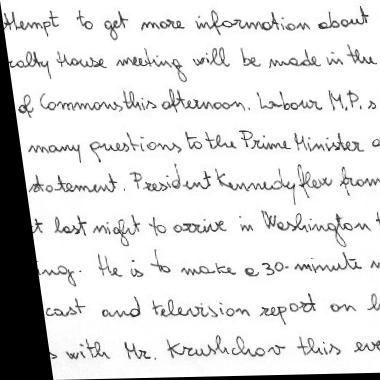 ttempt to get more information about
ralty House meeting will be made in the
of Commons this afternoon. Labour M.P.s
many questions to the Prime Minister a
statement. President Kennedy flew from
t last night to arrive in Washington t
ing. He is to make a 30-minute
cast and television report on
s with Mr. Krushchov this eve